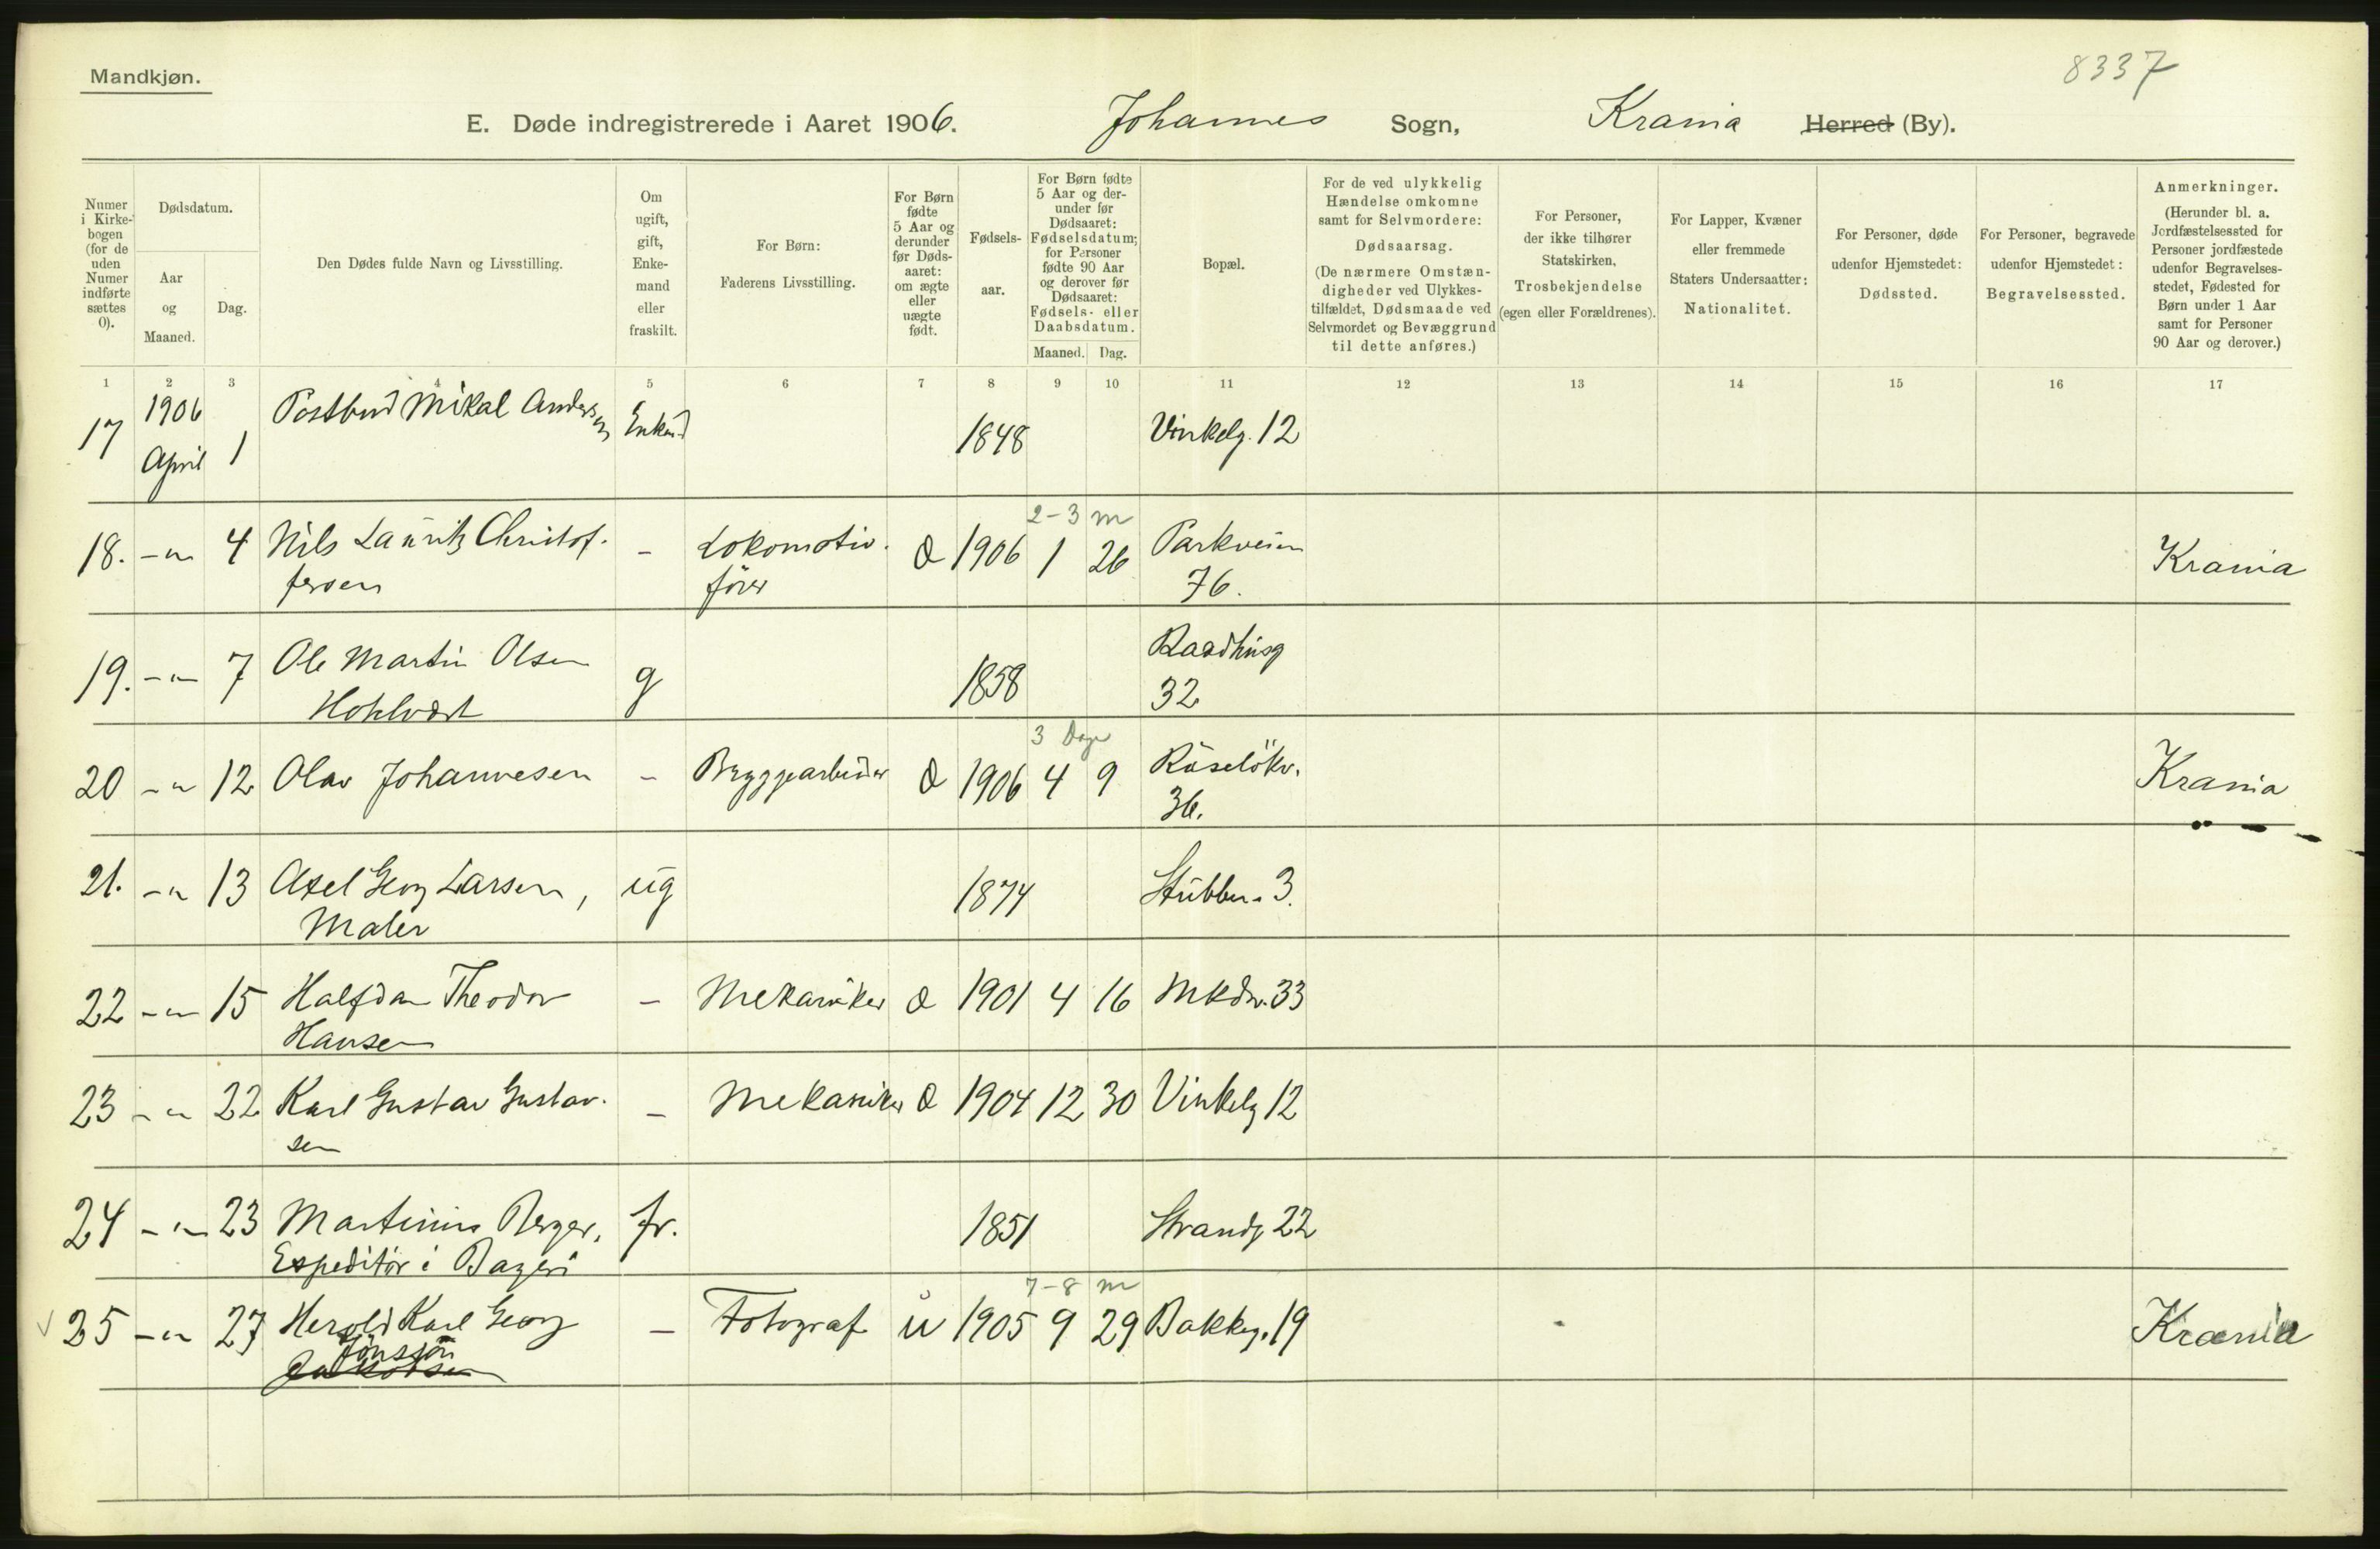 Mandkjøn.
8337
E. Døde indregistrerede i Aaret 1906. Johannes Sogn, Krania Herred (By).
Numer i Kirke-bogen (for de uden Numer indførte sættes 0).
Dødsdatum.
Aar og Maaned.
Dag.
Den Dødes fulde Navn og Livsstilling.
Om ugift, gift, Enke-mand eller fraskilt.
For Børn: Faderens Livsstilling.
For Børn fødte 5 Aar og derunder før Døds-aaret: om ægte eller uægte født.
Fødsels-aar.
For Børn fødte 5 Aar og der-under før Dødsaaret: Fødselsdatum; for Personer fødte 90 Aar og derover før Dødsaaret: Fødsels- eller Daabsdatum.
Maaned. Dag.
Bopæl.
For de ved ulykkelig Hændelse omkomne samt for Selvmordere: Dødsaarsag. (De nærmere Omstæn-digheder ved Ulykkes-tilfældet, Dødsmaade ved Selvmordet og Bevæggrund til dette anføres.)
For Personer, der ikke tilhører Statskirken, Trosbekjendelse (egen eller Forældrenes).
For Lapper, Kvæner eller fremmede Staters Undersaatter: Nationalitet.
For Personer, døde udenfor Hjemstedet: Dødssted.
For Personer, begravede udenfor Hjemstedet: Begravelsessted.
Anmerkninger. (Herunder bl. a. Jordfæstelsessted for Personer jordfæstede udenfor Begravelses-stedet, Fødested for Børn under 1 Aar samt for Personer 90 Aar og derover.)
1 2 3 4 5 6 7 8 9 10 11 12 13 14 15 16 17
17 1906 April 1 Postbud Mikal Andersen Enkmd 1848 Vinkelg. 12
2-3 m
18. -"- 4 Nils Lauritz Christof. - Lokomotiv. Æ 1906 1 26 Parkveien Krania
fersen fører 76.
19. -"- 7 Ole Martin Olsen g 1858 Raadhusg
Hotelvært 32
3 Dage
20 -"- 12 Olav Johannesen - Bryggearbeider Æ 1906 4 9 Ruseløkv. Krania
36.
21. -"- 13 Axel Georg Larsen, ug 1874 Stubben. 3.
Maler
22 -"- 15 Halfdan Theodor - Mekaniker Æ 1901 4 16 Mkdv. 33
Hansen
23 -"- 22 Karl Gustav Gustav. - Mekaniker Æ 1904 12 30 Vinkelg 12
sen
24 -"- 23 Martinius Berger, fr. 1851 Strandg 22
Expeditør i Bageri
7-8 m
25 -"- 27 Herold Karl Georg - Fotograf u 1905 9 29 Bakkeg. 19 Krania
Jönsson
Jakobsen